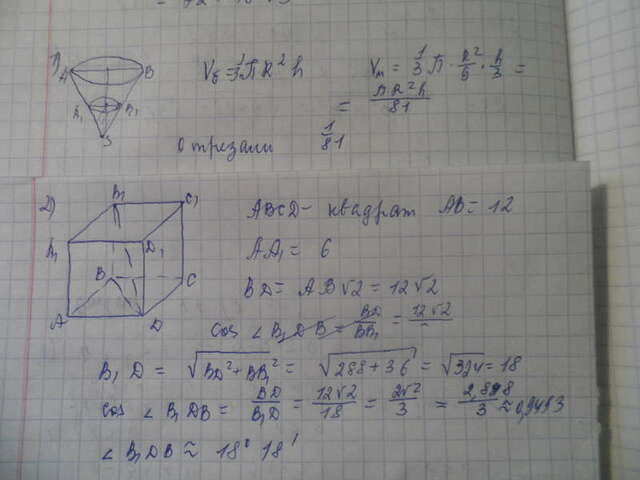 1)
A B
A₁ B₁
S
Vб = 1/3 ПR²h Vм = 1/3 П · R²/9 · h/3 =
= ПR²h/81
Отрезали 1/81
2)
B₁ C₁
A₁ D₁
B C
A D
ABCD - квадрат AB = 12
AA₁ = 6
BD = AB√2 = 12√2
cos ∠B₁DB = BD/BB₁ = 12√2
B₁D = √(BD² + BB₁²) = √(288 + 36) = √324 = 18
cos ∠B₁DB = BD/B₁D = 12√2/18 = 2√2/3 =
∠B₁DB ≈ 18° 18′